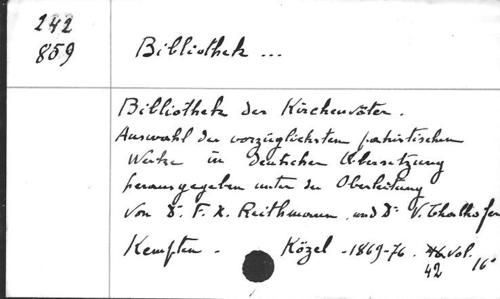 242
859
Bibliothek ...
Bibliothek der Kirchenväter.
Auswahl der vorzüglichsten patristischen
Werke in deutscher Übersetzung
herausgegeben unter der Oberleitung
von Dr. F. X. Reithmann und Dr V. Thalhofer
Kempten - Közel -1869-76. vol.
42 16°